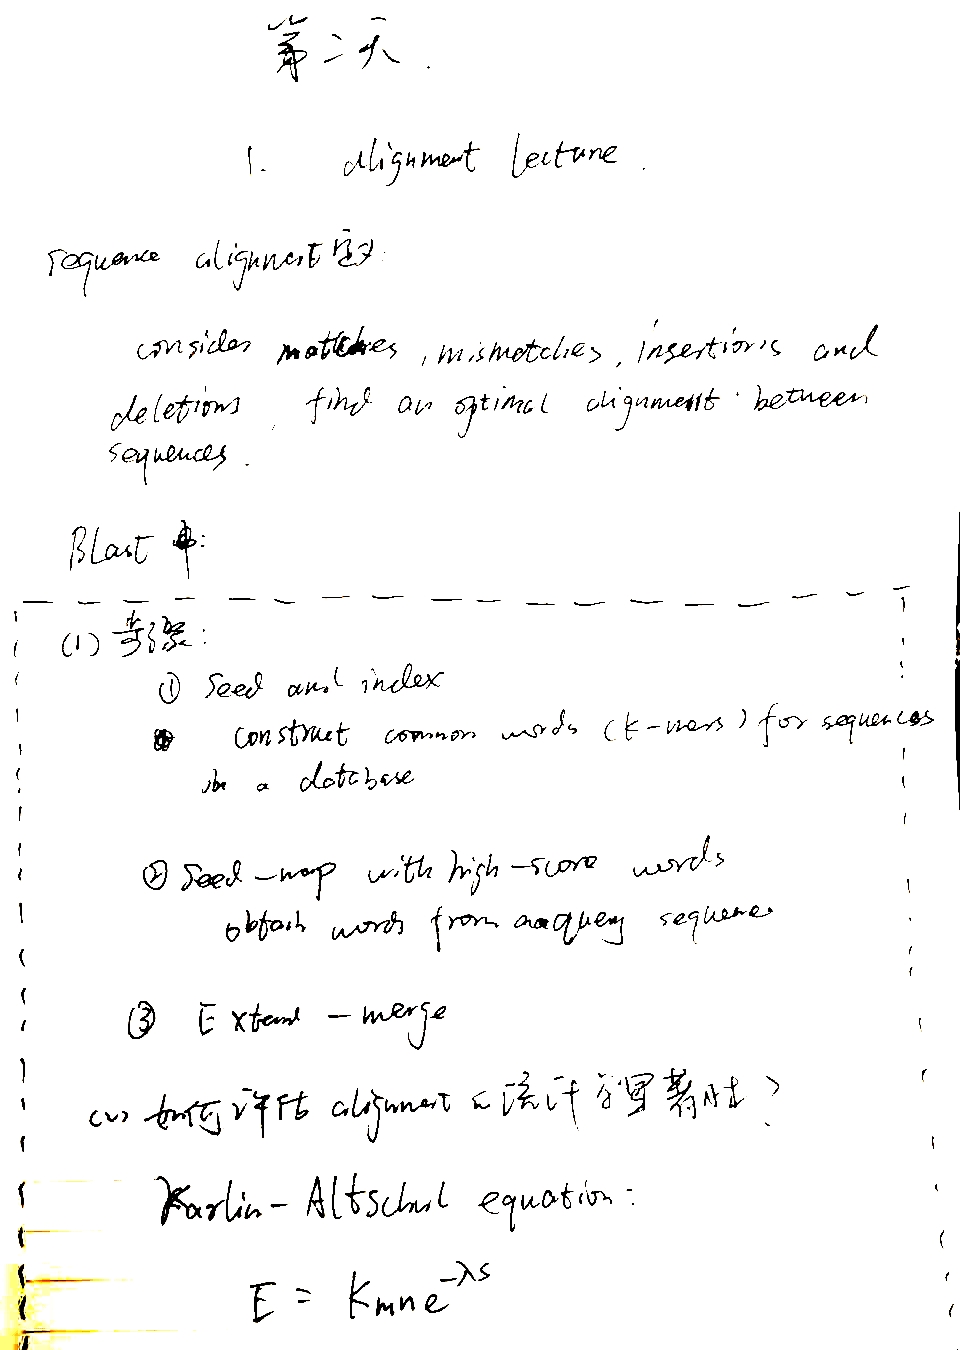 第二天.
1. alignment lecture.
sequence alignment 定义:
consider matches, mismatches, insertions and
deletions, find an optimal alignment between
sequences.
Blast 中:
(1) 步骤:
① Seed and index
construct common words (k-mers) for sequences
in a database
② Seed-map with high-score words
obtain words from a query sequence
③ Extend - merge
(2) 如何评估 alignment 的统计学显著性?
Karlin-Altschul equation:
E = Kmne^-λS